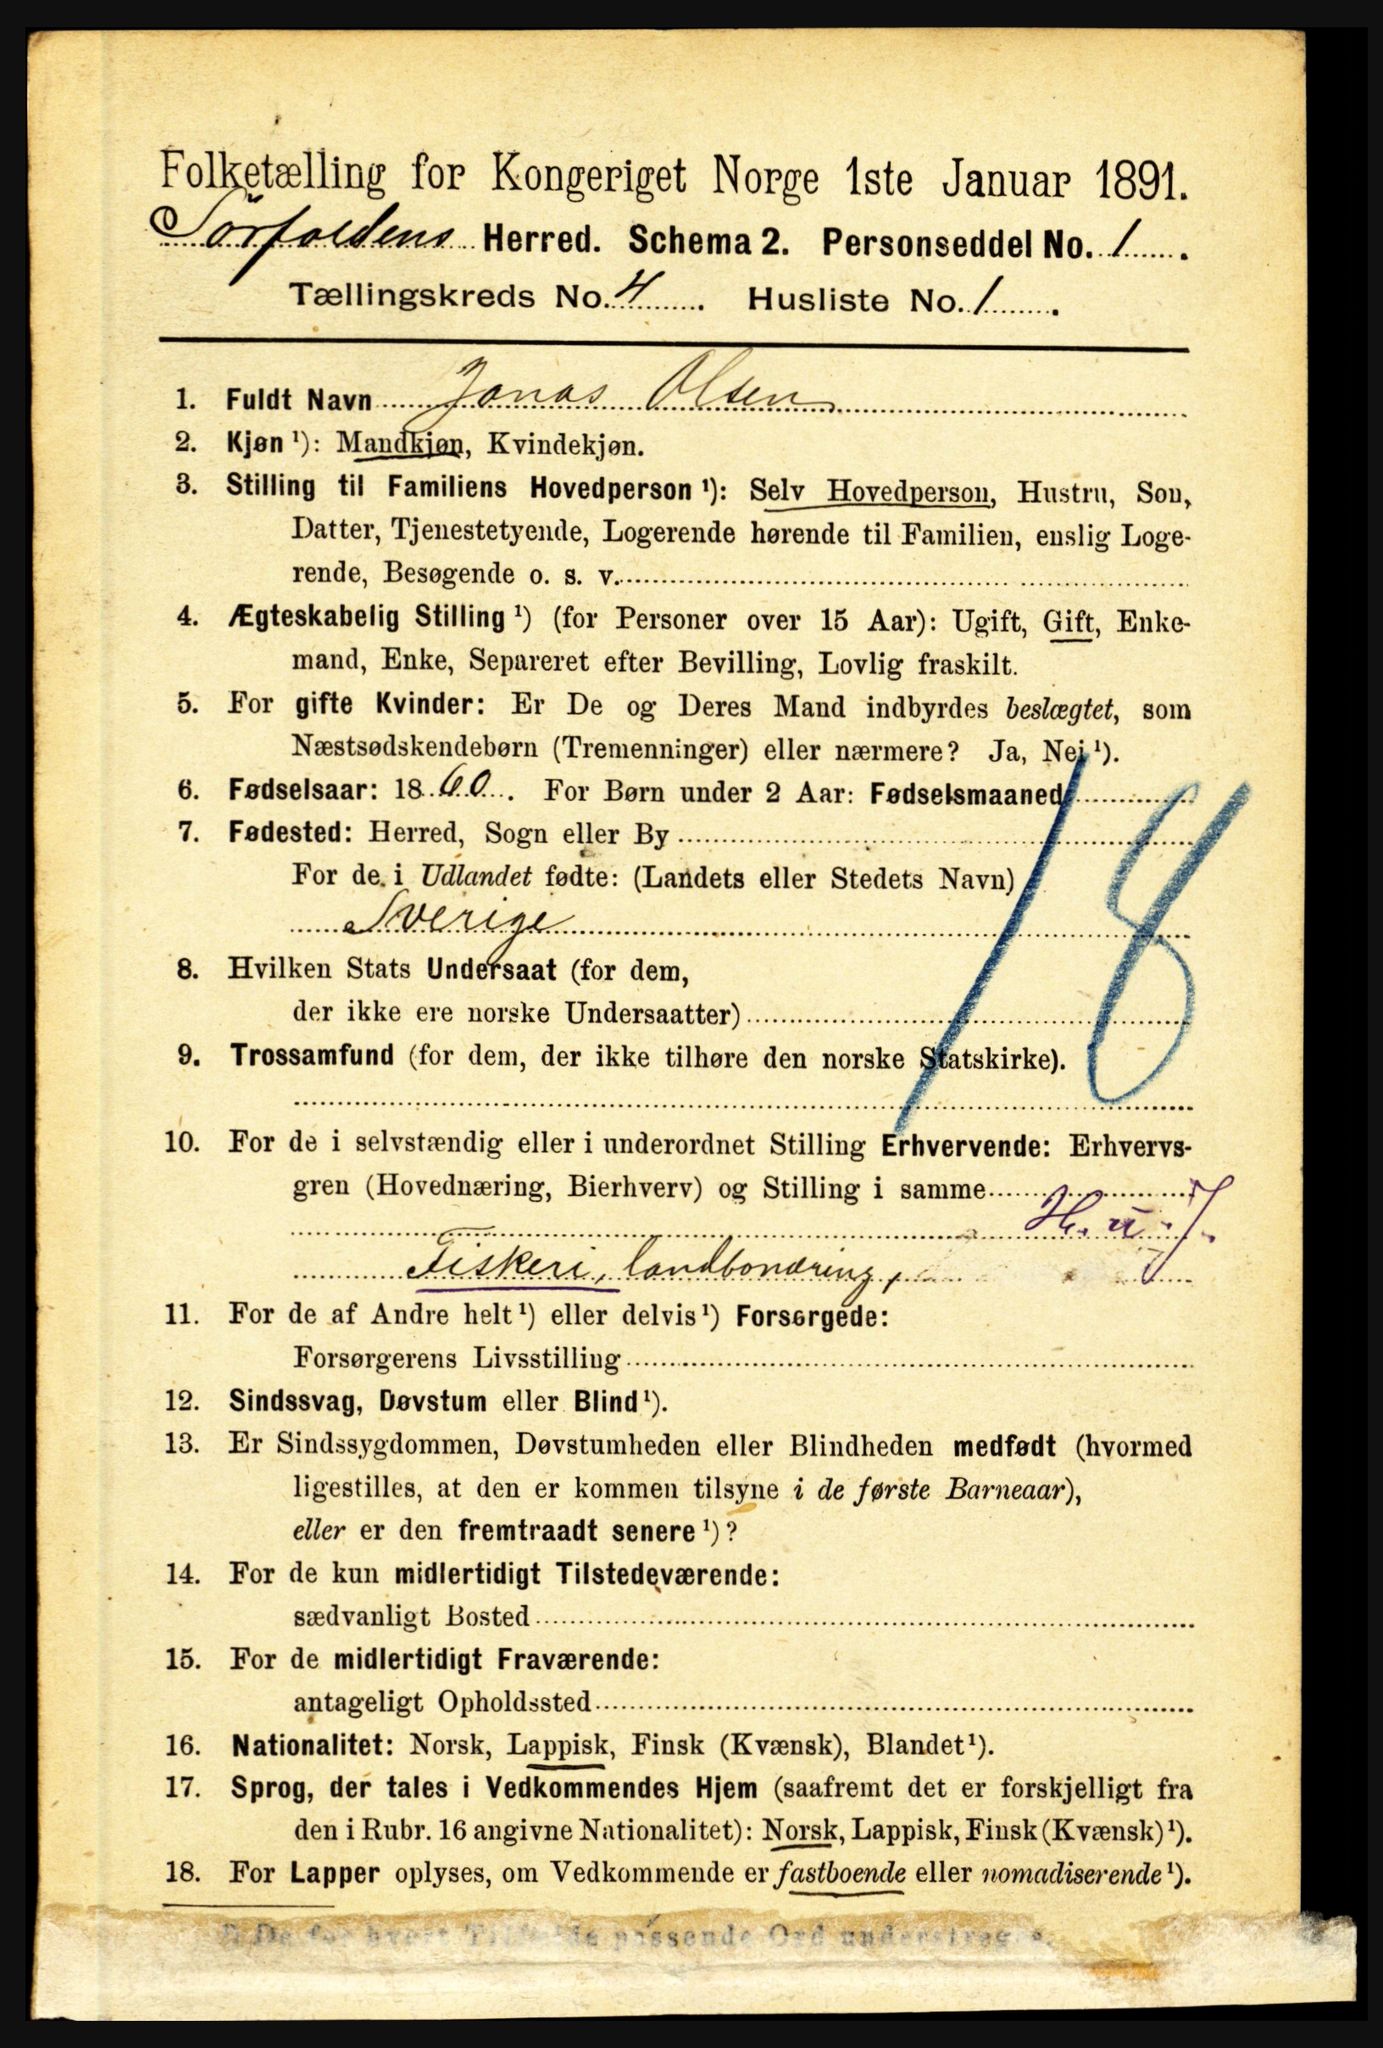 Folketælling for Kongeriget Norge 1ste Januar 1891.
Sørfoldens Herred. Schema 2. Personseddel No. 1.
Tællingskreds No. 4. Husliste No. 1.
1. Fuldt Navn Jonas Olsen
2. Kjøn ¹): Mandkjøn, Kvindekjøn.
3. Stilling til Familiens Hovedperson ¹): Selv Hovedperson, Hustru, Søn,
Datter, Tjenestetyende, Logerende hørende til Familien, enslig Loge-
rende, Besøgende o. s. v.
4. Ægteskabelig Stilling ¹) (for Personer over 15 Aar): Ugift, Gift, Enke-
mand, Enke, Separeret efter Bevilling, Lovlig fraskilt.
5. For gifte Kvinder: Er De og Deres Mand indbyrdes beslægtet, som
Næstsødskendebørn (Tremenninger) eller nærmere? Ja, Nei ¹).
6. Fødselsaar: 1860. For Børn under 2 Aar: Fødselsmaaned
7. Fødested: Herred, Sogn eller By
For de i Udlandet fødte: (Landets eller Stedets Navn)
Sverige
18
8. Hvilken Stats Undersaat (for dem,
der ikke ere norske Undersaatter)
9. Trossamfund (for dem, der ikke tilhøre den norske Statskirke).
10. For de i selvstændig eller i underordnet Stilling Erhvervende: Erhvervs-
gren (Hovednæring, Bierhverv) og Stilling i samme
H. u. J.
Fiskeri, landbonæring,
11. For de af Andre helt ¹) eller delvis ¹) Forsørgede:
Forsørgerens Livsstilling
12. Sindssvag, Døvstum eller Blind ¹).
13. Er Sindssygdommen, Døvstumheden eller Blindheden medfødt (hvormed
ligestilles, at den er kommen tilsyne i de første Barneaar),
eller er den fremtraadt senere ¹)?
14. For de kun midlertidigt Tilstedeværende:
sædvanligt Bosted
15. For de midlertidigt Fraværende:
antageligt Opholdssted
16. Nationalitet: Norsk, Lappisk, Finsk (Kvænsk), Blandet ¹).
17. Sprog, der tales i Vedkommendes Hjem (saafremt det er forskjelligt fra
den i Rubr. 16 angivne Nationalitet): Norsk, Lappisk, Finsk (Kvænsk) ¹).
18. For Lapper oplyses, om Vedkommende er fastboende eller nomadiserende ¹).
¹) De for hvert Tilfælde passende Ord understreges.